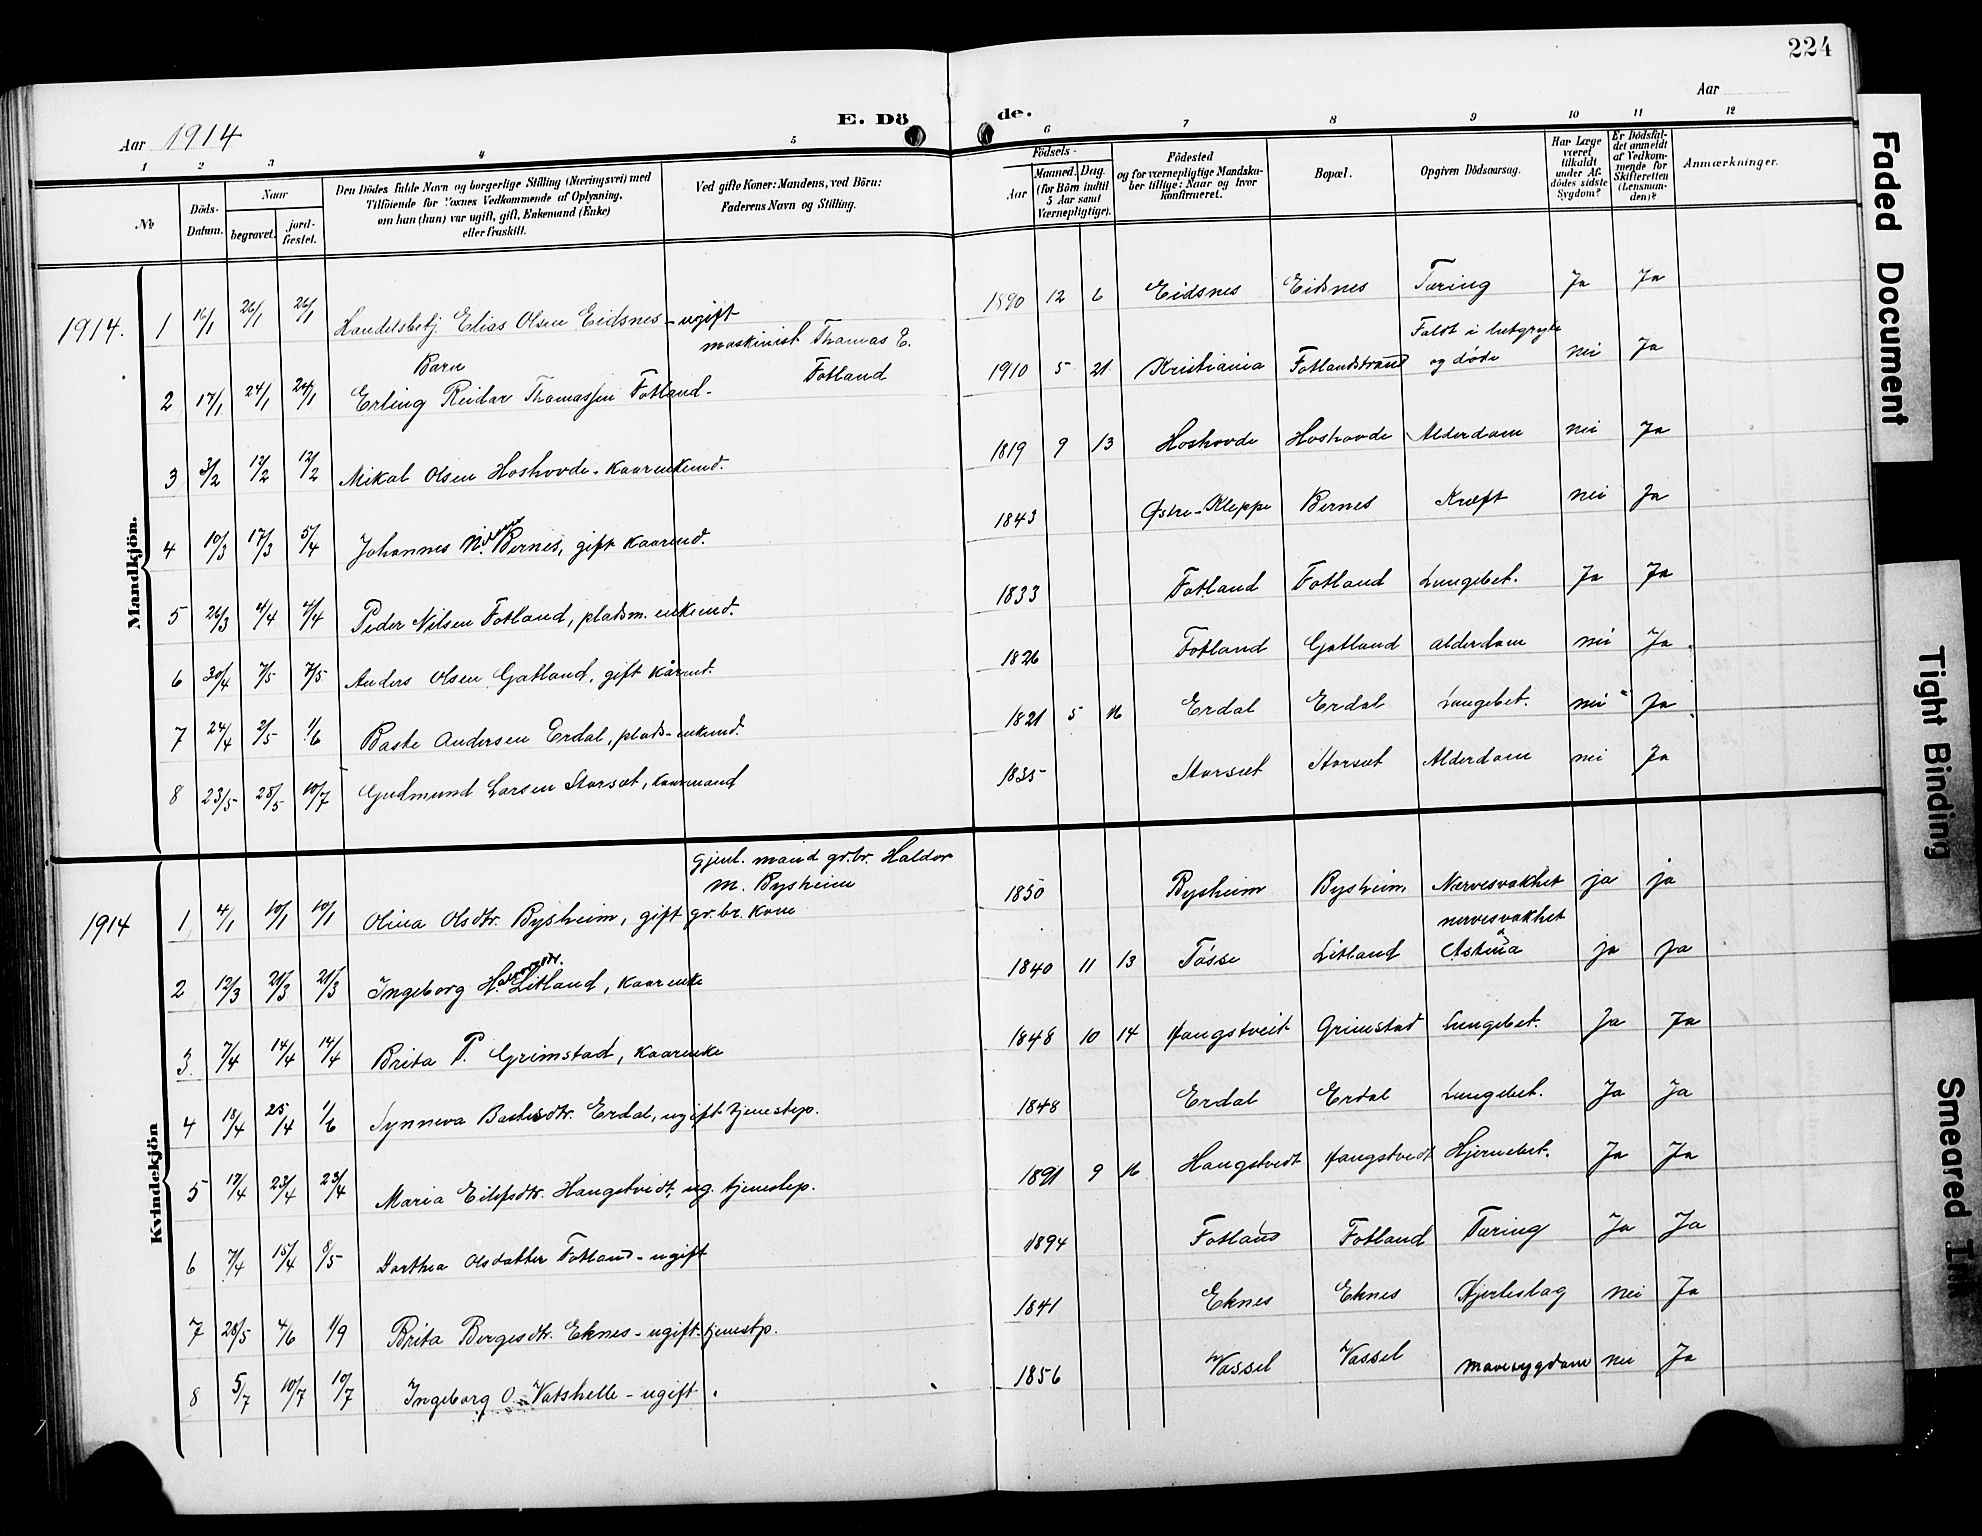 224
Aar
Aar 1914
E. Dö
de.
1 2 3 4 5 6 7 8 9 10 11 12
No
Döds-Datum.
Naar
begravet.
jordfæstet.
Den Dödes fulde Navn og borgerlige Stilling (Næringsvei) med
Tilföiende for Voxnes Vedkommende af Oplysning,
om han (hun) var ugift, gift, Enkemand (Enke)
eller fraskilt.
Ved gifte Koner: Mandens, ved Börn:
Faderens Navn og Stilling.
Födsels-
Aar
Maaned. Dag.
(for Börn indtil
5 Aar samt
Værnepligtige).
Födested
og for værnepligtige Mandska-
ber tillige: Naar og hvor
konfirmeret.
Bopæl.
Opgiven Dödsaarsag.
Har Læge
været
tilkaldt
under Af-
dödes sidste
Sygdom?
Er Dödsfal-
det anmeldt
af Vedkom-
mende for
Skifteretten
(Lensman-
den)?
Anmærkninger.
Mandkjön.
1914. 1 16/1 26/1 26/1 Handelsbetj. Elias Olsen Eidsnes - ugift 1890 12 6 Eidsnes Eidsnes Tæring Ja Ja
Barn maskinist Thomas E. Fotland
2 17/1 24/1 24/1 Erling Reidar Thomassen Fotland - 1910 5 21 Kristiania Fotlandstrand Faldt i og døde nei Ja
3 3/2 12/2 12/2 Mikal Olsen Hoshovde - kaarenkemd. 1819 9 13 Hoshovde Hoshovde Alderdom nei Ja
4 10/3 17/3 5/4 Johannes N. Bernes, gift kaarmd. 1843 Østre-Kleppe Bernes Kræft nei Ja
5 26/3 4/4 Peder Nilsen Fotland, pladsm. enkemd. 1833 Fotland Fotland Lungebet. Ja Ja
6 30/4 7/5 7/5 Anders Olsen Gatland, gift kårmd. 1826 Fotland Gatland alderdom nei Ja
7 24/4 2/5 1/6 Baste Andersen Erdal, plads-enkemd. 1821 5 16 Erdal Erdal Lungebet. nei Ja
8 23/5 28/5 10/7 Gudmund Larsen Storsæt, kaarmand 1835 Storsæt Storsæt Alderdom nei Ja
Kvindekjön
gjenl. mand gr.br. Haldor
M. Bysheim
1914 1 4/1 10/1 10/1 Olina Olsdtr. Bysheim, gift gr.br. kone 1850 Bysheim Bysheim Nervesvakhet ja ja
2 12/3 21/3 21/3 Ingeborg H. Litland, kaarenke 1840 11 13 Tøsse Litland nervesvakhet Astma ja ja
3 7/4 14/4 14/4 Brita P. Grimstad, kaarenke 1848 10 14 Hangstveit Grimstad Lungebet. Ja Ja
4 18/4 25/4 1/6 Synneva Bastesdtr. Erdal, ugift tjenestep. 1848 Erdal Erdal Lungebet. Ja Ja
5 17/4 23/4 23/4 Maria Hangstvedt, ug. tjenestep. 1891 9 16 Hangstvedt Hangstvedt Hjernebet. Ja Ja
6 7/4 15/4 8/5 Dorthea Olsdatter Fotland - ugift 1894 Fotland Fotland Tæring Ja Ja
7 28/5 4/6 1/9 Brita Bergesdtr. Eknes - ugift tjenestp. 1841 Eknes Eknes Hjerteslag nei Ja
8 5/7 10/7 10/7 Ingeborg O. Vatshelle - ugift 1856 Vassel Vassel Mavesygdom nei Ja
Faded Document
Tight Binding
Smeared Ink